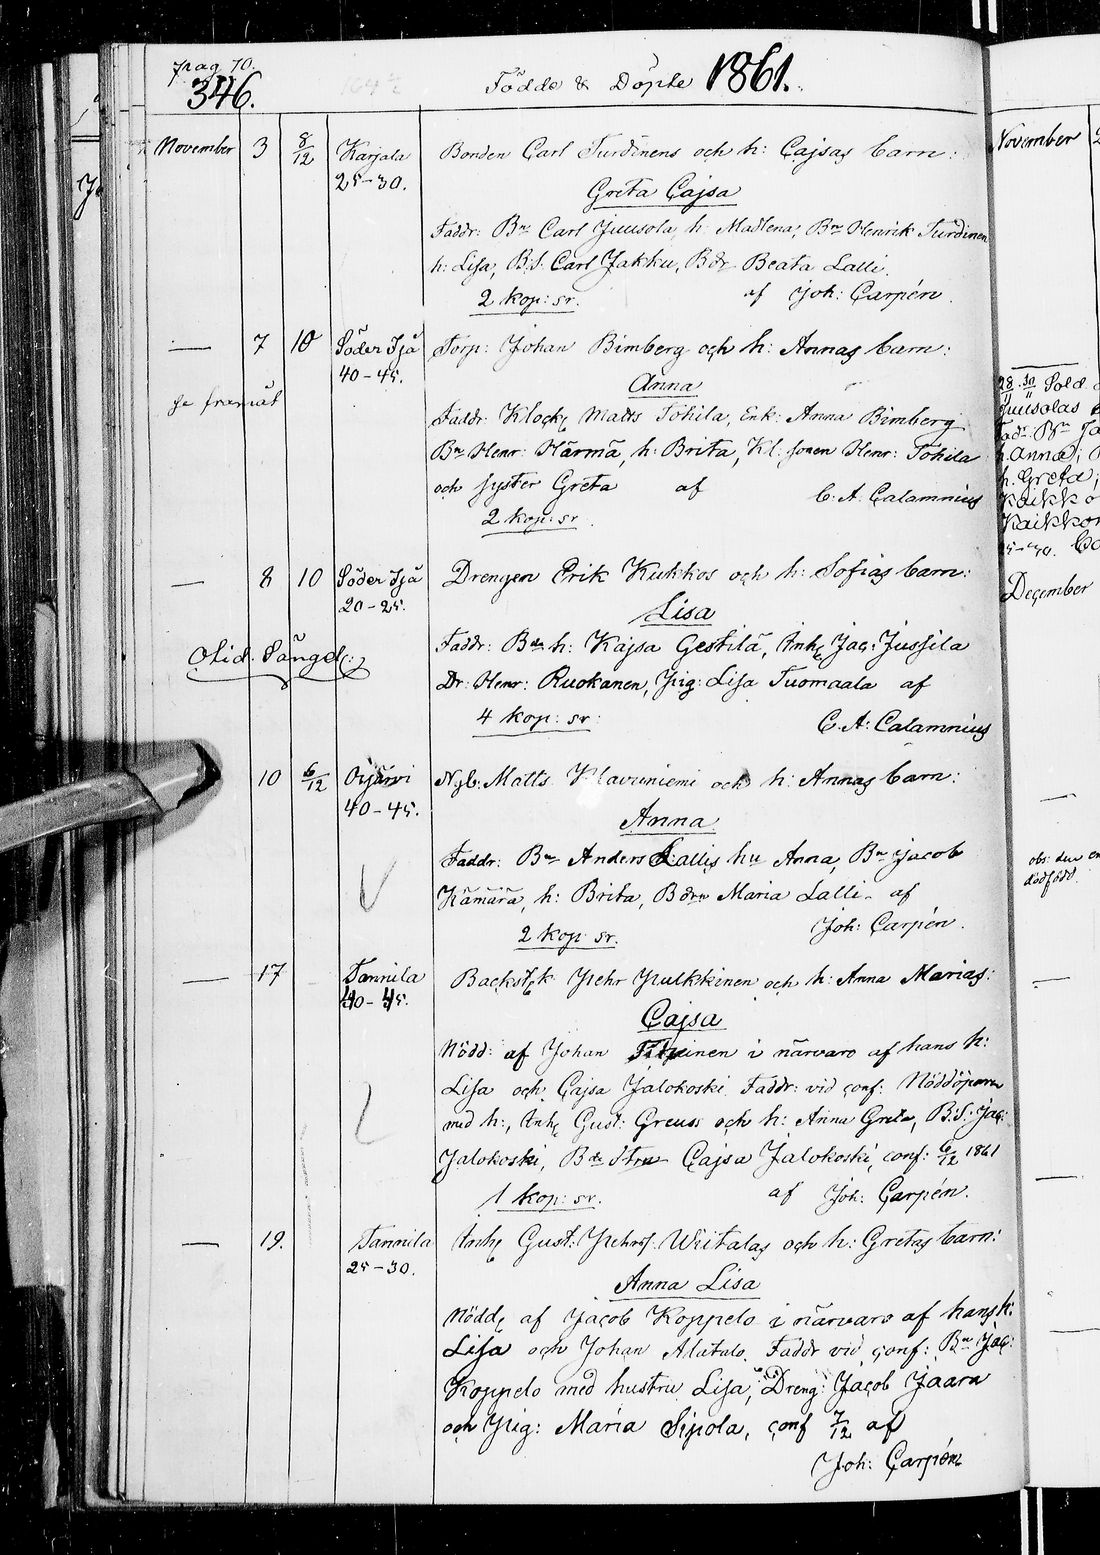 pag 70.
346.
Födde & Döpte 1861.
November 3 8/12 Karjala Bonden Carl Turdinens och h: Cajsas barn:
25-30.
Greta Cajsa
Faddr: Bn Carl Juusola, h: Madlena, Bn Henrik Turdinen
h: Lisa, B.S. Carl Jakku, Bdr Beata Lalli.
2 kop: sr. af Joh: Carpén.
— 7 10 Söder Ijå Torp: Johan Bimberg och h: Annas barn:
40-45.
Anna
se framåt
Faddr: Klock Matts Tohila, Enk: Anna Bimberg
Bn Henr: Härmä, h: Brita, Kl: sonen Henr: Tohila
och syster Greta af C. A. Calamnius
2 kop: sr.
— 8 10 Söder Ijå Drengen Erik Kukkos och h: Sofias barn:
20-25.
Lisa
Olid: Sängel:
Faddr: Bde h: Kajsa Gestilä, Inh Jac: Jussila
Dr: Henr: Ruokanen, Pig: Lisa Tuomaala af
4 kop: sr: C. A. Calamnius
10 6/12 Oijärvi Nyb: Matts Klavuniemi och h: Annas barn:
40-45.
Anna
Faddr: Bn Anders Lallis hu Anna, Bn Jacob
Kämärä, h: Brita, Bdrn Maria Lalli. af
2 kop sr. Joh: Carpén.
— 17 Tannila Backst:k Pehr Pulkkinen och h: Anna Marias:
40-45.
Cajsa
Nödd: af Johan i närvaro af hans h:
Lisa och Cajsa Jalokoski. Faddr: vid conf: Nöddöparen
med h:, Inh Gust: Greuss och h: Anna Greta, B.S. Jac:
Jalokoski, Bde Cajsa Jalokoski, conf: 6/12 1861
1 kop: sr. af Joh: Carpén.
— 19. Tannila Inh Gust: Pehrs: Wiitalas och h: Gretas barn:
25-30.
Anna Lisa
Nödd af Jacob Koppelo i närvaro af hans h:
Lisa och Johan Alatalo. Faddr vid conf: Bn Jac:
Koppelo med hustru Lisa, Dreng: Jacob Jaara
och Pig: Maria Sipola, conf 7/12 af
Joh: Carpén
November
28/11 30/11 Sold
Juusolas
Fadr Bn Ja
h. Anna;
h. Greta;
Kaikko
Kaikkon
25-30. Ca
December
obs: den
dödfödd.